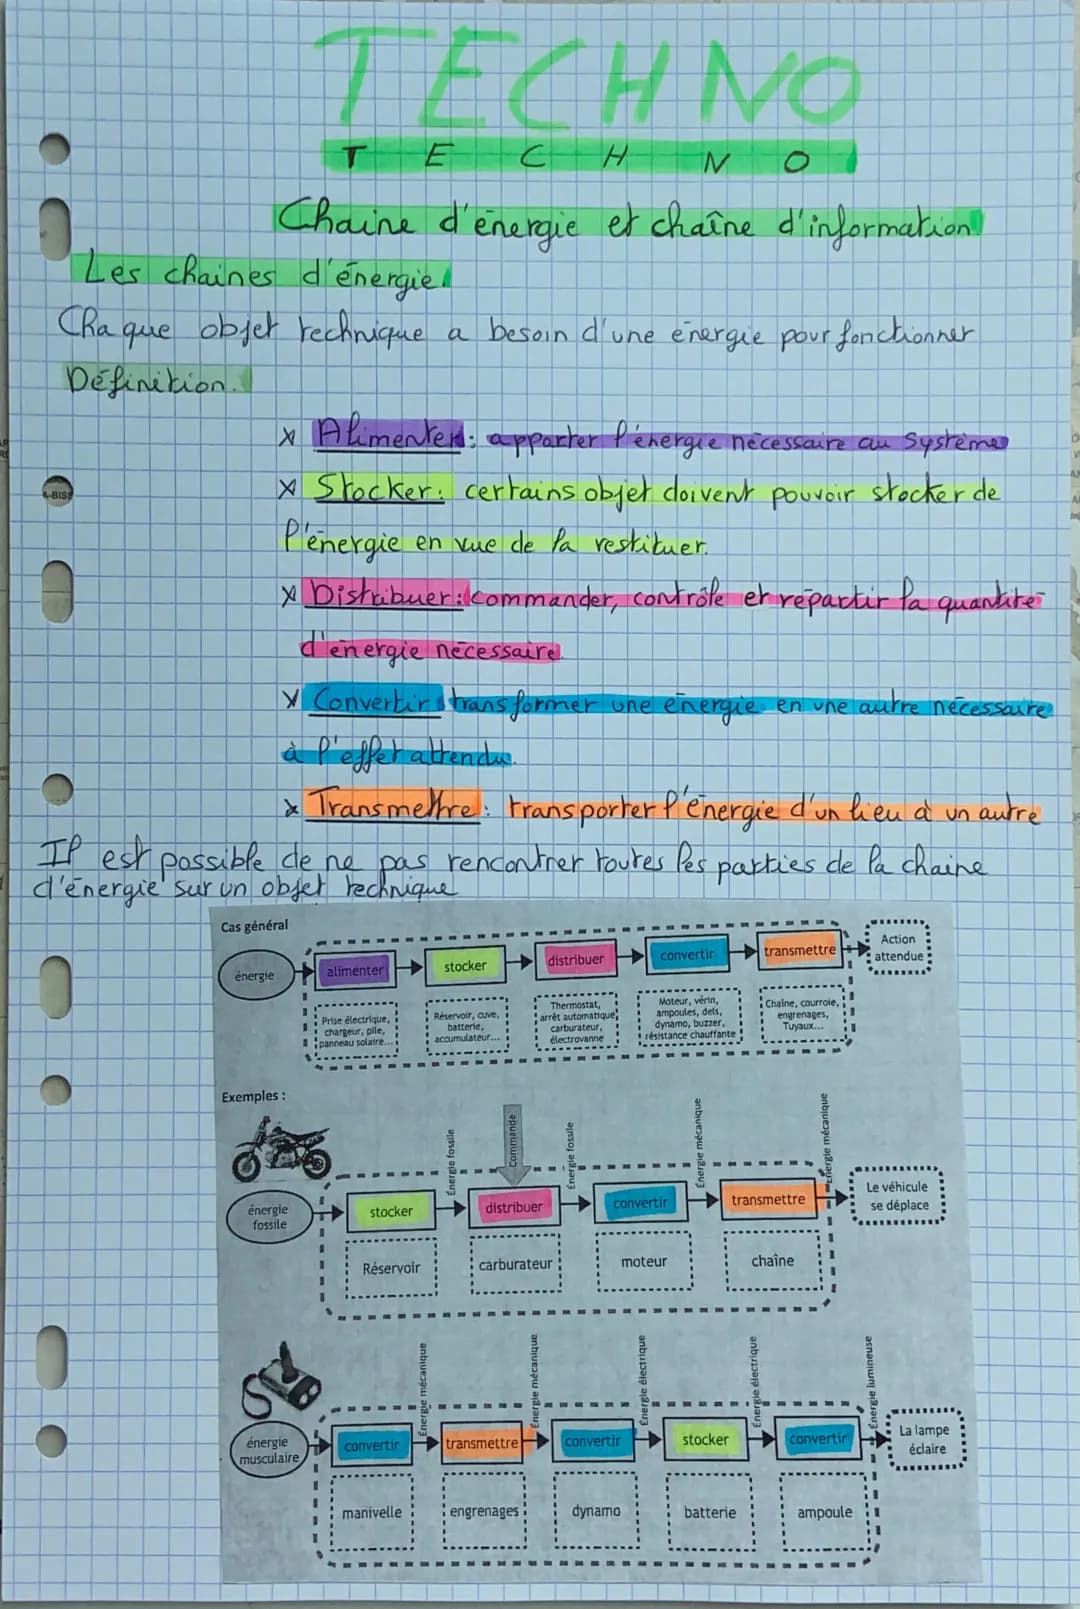 TECHNO
T E C H N O
Chaine d'énergie et chaîne d'information.
Les chaines d'énergie.
Chaque objet technique a besoin d'une énergie pour fonctionner
Définition.
x Alimenter: apparter l'énergie nécessaire au système
x Stocker: certains objet doivent pouvoir stocker de
l'énergie en vue de la restituer.
x Distribuer: commander, contrôle et répartir la quantité
d'énergie nécessaire
x Convertir: transformer une énergie en une autre nécessaire
à l'effet attendu.
x Transmettre: transporter l'énergie d'un lieu à un autre
Il est possible de ne pas rencontrer toutes les parties de la chaine
d'énergie sur un objet technique
Cas général
énergie alimenter stocker distribuer convertir transmettre Action attendue
Prise électrique, chargeur, pile, panneau solaire...
Réservoir, cuve, batterie, accumulateur...
Thermostat, arrêt automatique carburateur, électrovanne
Moteur, vérin, ampoules, dels, dynamo, buzzer, résistance chauffante
Chaîne, courroie, engrenages, Tuyaux...
Exemples :
Énergie fossile Commande Énergie fossile Énergie mécanique Énergie mécanique
énergie fossile stocker distribuer convertir transmettre Le véhicule se déplace
Réservoir carburateur moteur chaîne
Énergie mécanique Énergie mécanique Énergie électrique Énergie électrique Énergie lumineuse
énergie musculaire convertir transmettre convertir stocker convertir La lampe éclaire
manivelle engrenages dynamo batterie ampoule